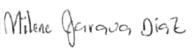 Milene Jarava Diaz